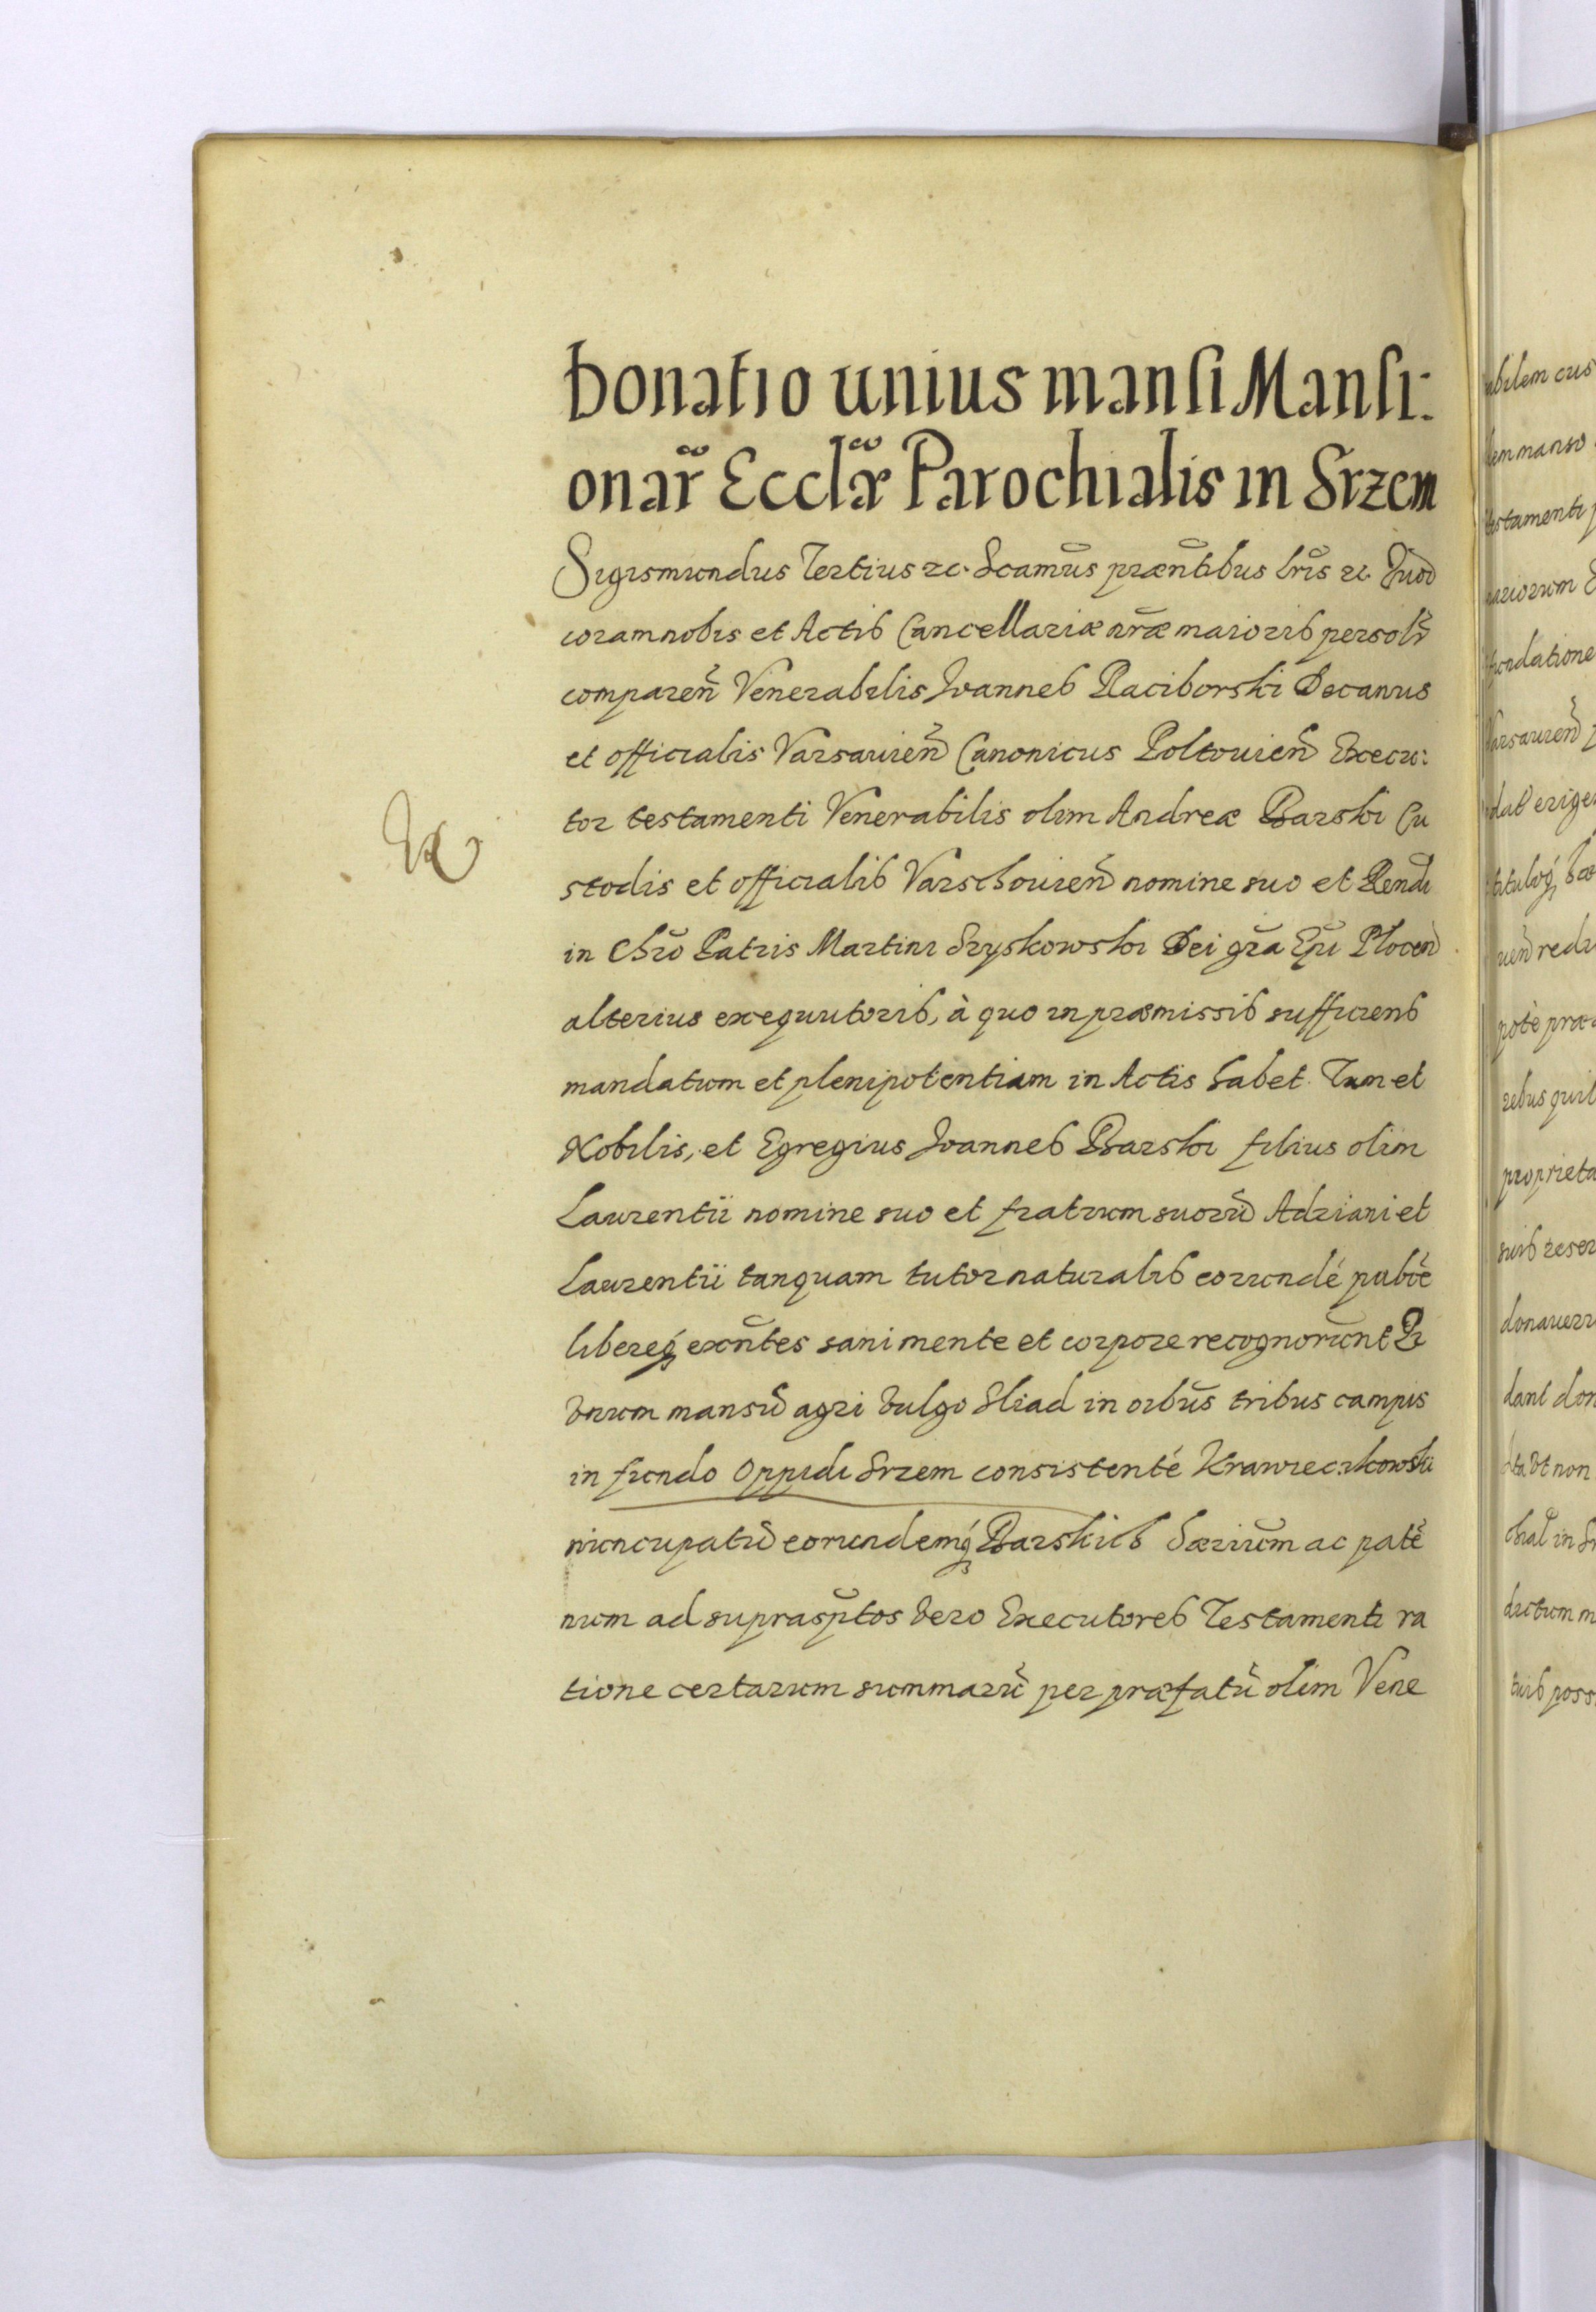 Donatio unius mansi Mansi:
onar̃ Ecclæ̃ Parochialis in Srzem
Sigismundus Tertius etc. Scamus̃ præñtibus lr̃is etc. Quod
coram nobis et Actis Cancellariæ nr̃æ maioris persolr̃
compareñ Venerabilis Joannes Raciborski Decanus
et officialis Varsavień Canonicus Poltovień Execu:
tor testamenti Venerabilis olim Andreæ Psarski Cu
stodis et officialis Varschovień nomine suo et Rendi
in Chr̃o Patris Martini Szyskowski Dei gr̃a Ep̃i Plocen̄
alterius exequutoris, à quo in præmissis sufficiens
mandatum et plenipotentiam in Actis habet. Tum et
Nobilis, et Egregius Joannes Psarski filius olim
Laurentii nomine suo et fratrum suorũ Adriani et
Laurentii tanquam tutor naturalis eorundé publ̃e
libereq́ exñtes sani mente et corpore recognorũnt Qr
vnum mansũ agri vulgo Slad in oĩbus tribus campis
in fundo Oppidi Srzem consistenté Krawieczkowski
nuncupatũ eorundemq́ Psarskich hærium̃ ac paté
num ad suprasp̃tos vero Executores Testamenti ra
tione certarum summarũ per præfatũ olim Vene
abilem cus
dem manso
testamenti p
nariorum E
fundatione
Varsavień p
dat erige
titulóq́ hæ
vień redi
potè præ
rebus quil
proprieta
suis reser
donaverr
dant don
ita vt non
chial in Sr
dictum m
tuis poss